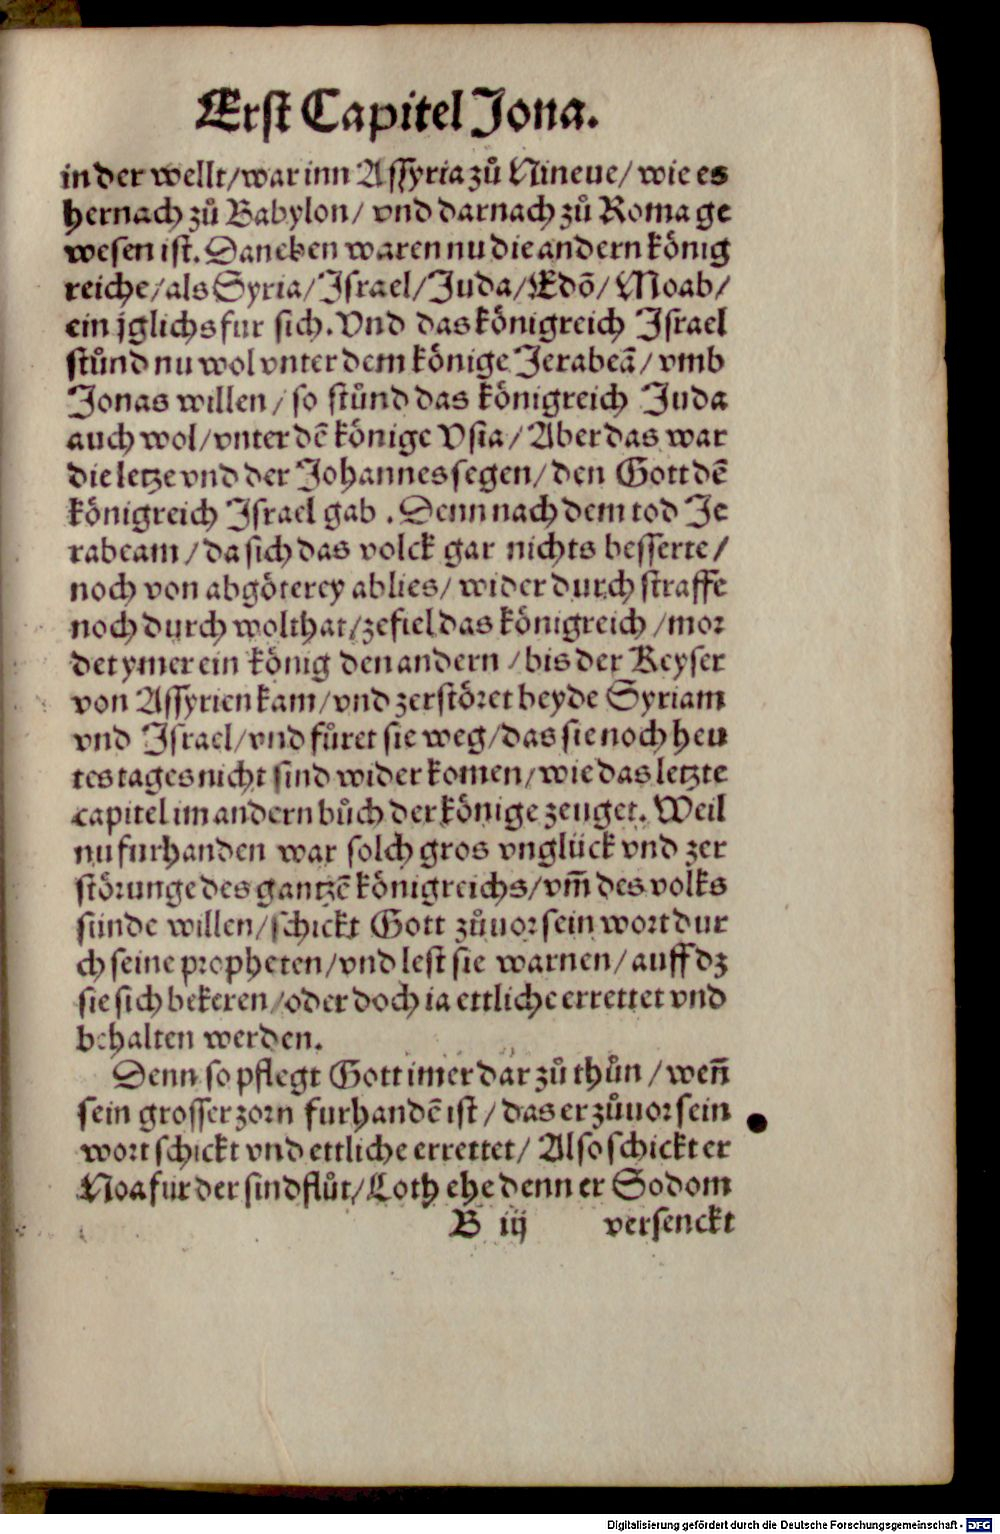 Erst Capitel Jona.
in der wellt/war inn Assyria zů Nineue/ wie es
hernach zů Babylon/ vnd darnach zů Roma ge
wesen ist. Daneben waren nu die andern könig
reiche/als Syria/Israel/Juda/Edõ/Moab/
ein jglichs fur sich. Vnd das königreich Israel
stůnd nu wol vnter dem könige Jerabeã/ vmb
Jonas willen/ so stůnd das königreich Juda
auch wol/vnter dẽ könige Vsia/ Aber das war
die letze vnd der Johannes segen/den Gott dẽ
königreich Israel gab . Denn nach dem tod Je
rabeam/da sich das volck gar nichts besserte/
noch von abgöterey ablies/ wider durch straffe
noch durch wolthat/zefiel das königreich/mor
det ymer ein könig den andern/bis der Keyser
von Assyrien kam/vnd zerstöret beyde Syriam
vnd Israel/vnd fůret sie weg/das sie noch heu
tes tages nicht sind wider komen/wie das letzte
capitel im andern bůch der könige zeuget. Weil
nu furhanden war solch gros vnglück vnd zer
störunge des gantzẽ königreichs/vm̃ des volks
sunde willen/schickt Gott zůuor sein wort dur
ch seine propheten/vnd lest sie warnen/auff dz
sie sich bekeren/oder doch ia ettliche errettet vnd
behalten werden.
Denn so pflegt Gott imerdar zů thůn/weñ
sein grosser zorn furhandẽ ist/das er zůuor sein
wort schickt vnd ettliche errettet/ Also schickt er
Noa fur der sindflůt/Loth ehe denn er Sodom
B iij versenckt
Digitalisierung gefördert durch die Deutsche Forschungsgemeinschaft - DFG